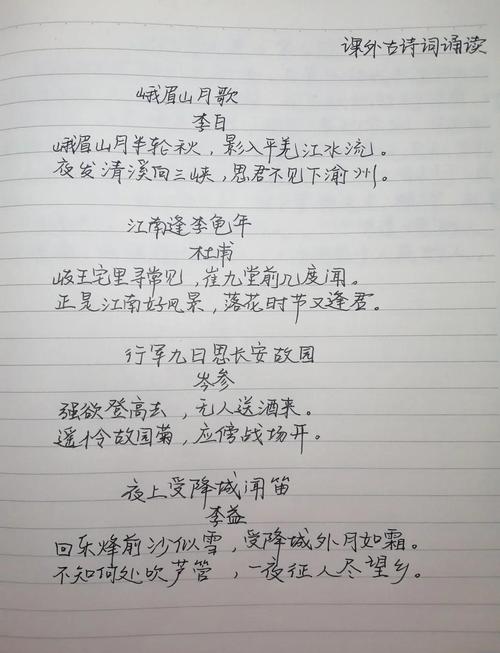 课外古诗词诵读
峨眉山月歌
李白
峨眉山月半轮秋，影入平羌江水流。
夜发清溪向三峡，思君不见下渝州。
江南逢李龟年
杜甫
岐王宅里寻常见，崔九堂前几度闻。
正是江南好风景，落花时节又逢君。
行军九日思长安故园
岑参
强欲登高去，无人送酒来。
遥怜故园菊，应傍战场开。
夜上受降城闻笛
李益
回乐烽前沙似雪，受降城外月如霜。
不知何处吹芦管，一夜征人尽望乡。